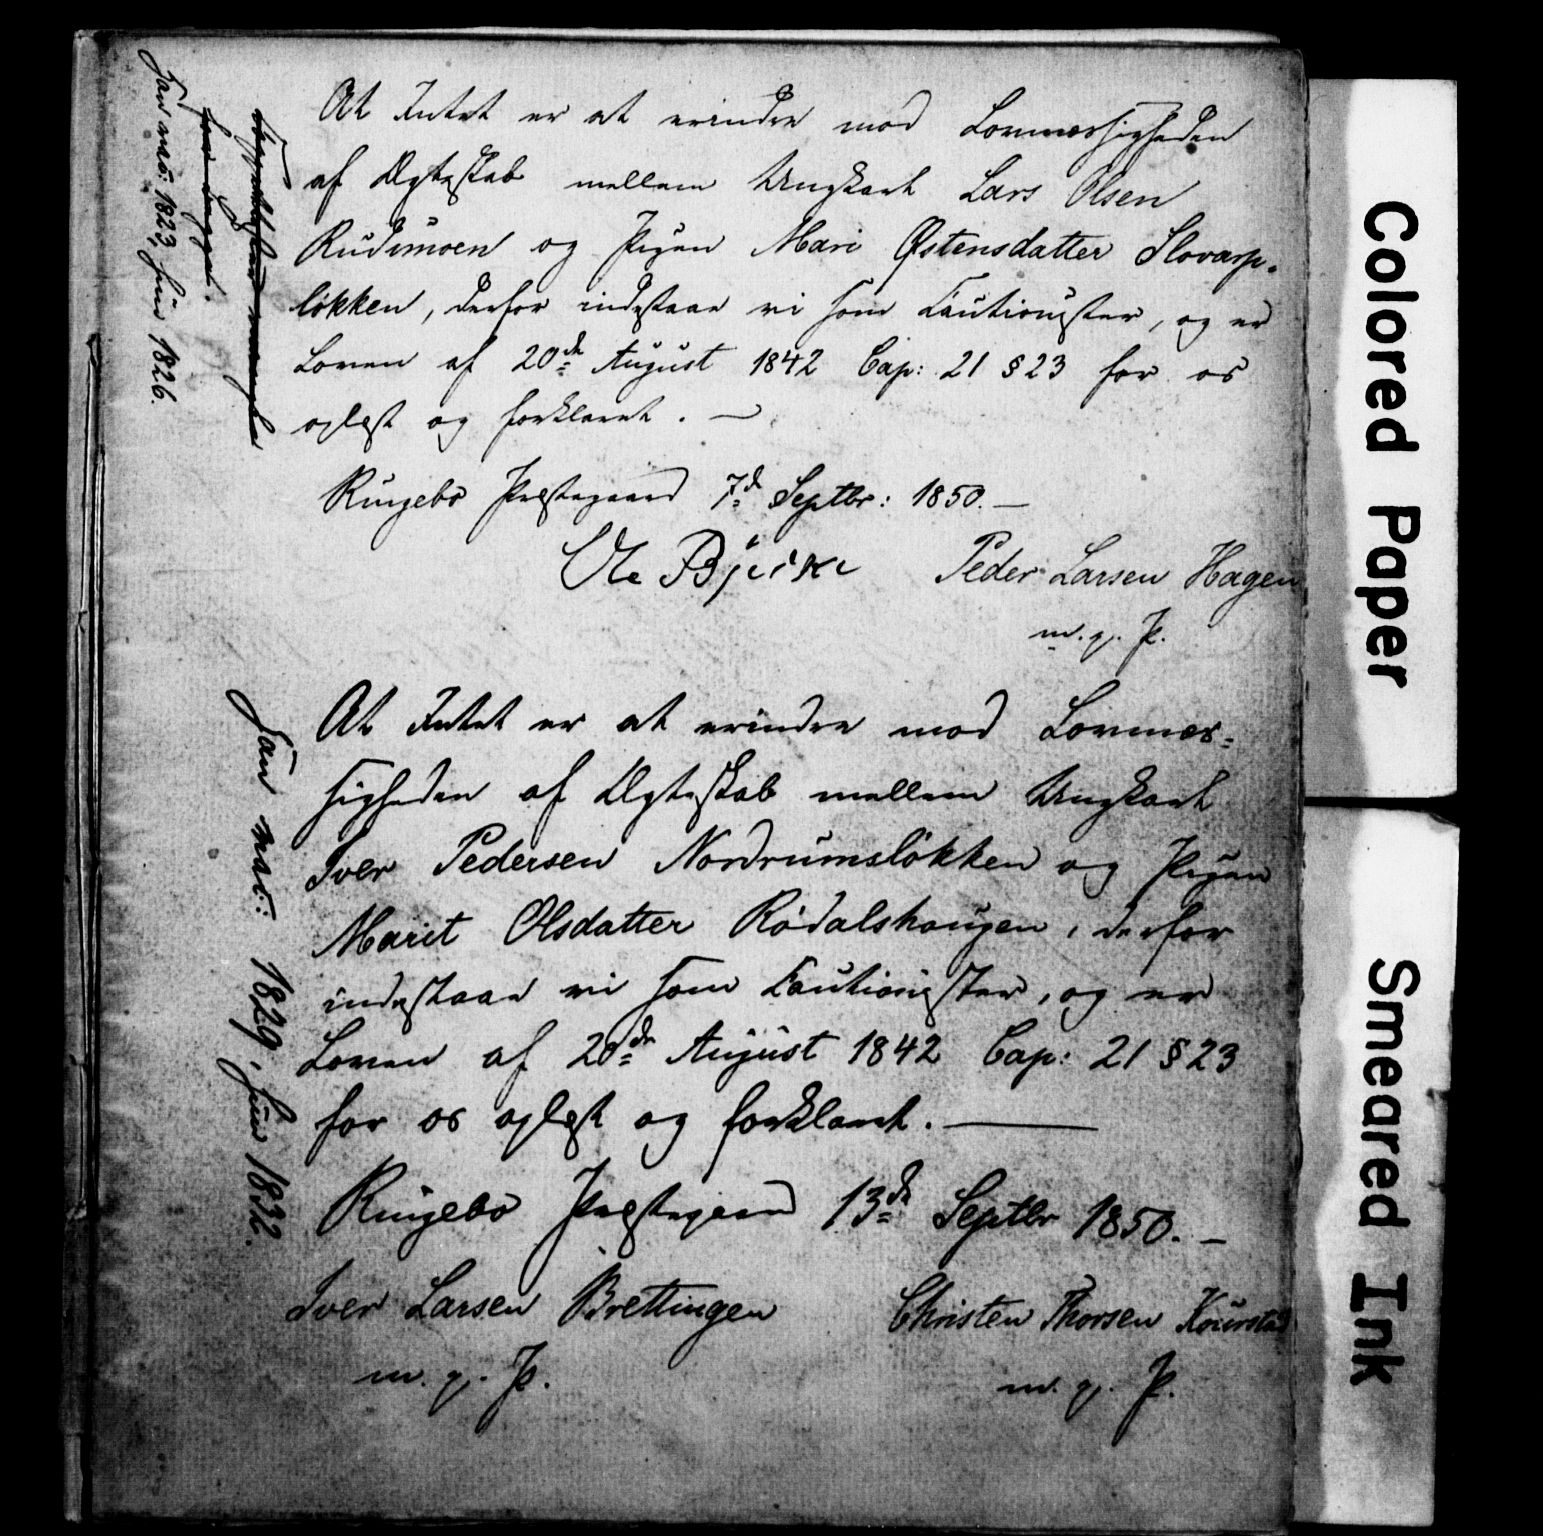 At Intet er at erindre mod Lovmæssigheden
af Ægteskab mellem Ungkarl Lars Olsen
Rudimoen og Pigen Mari Østensdatter Slovarp-
løkken, derfor indestaae vi som Cautionister, og er
Loven af 20de August 1842 Cap: 21 § 23 for os
oplæst og forklaret. —
Ringebo Præstegaard 7de Septbr: 1850. —
Ole Bjørke Peder Larsen Hagen
m. p. P.
Han vac: 1823, hun 1826.
At Intet er at erindre mod Lovmæs-
sigheden af Ægteskab mellem Ungkarl
Iver Pedersen Nordrumsløkken og Pigen
Marit Olsdatter Rødalshaugen, derfor
indestaae vi som Cautionister, og er
Loven af 20de August 1842 Cap: 21 § 23
for os oplæst og forklaret. —
Ringebo Præstegaard 13de Septbr 1850. —
Iver Larsen Brettingen Christen Thorsen
m. p. P. m. p. P.
Han vac: 1829, hun 1832.
Colored Paper
Smeared Ink